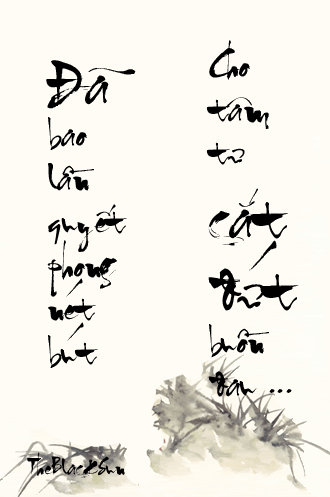 Đã
bao
lần
quyết
phóng
nét
bút
Cho
tâm
tư
cắt
đứt
buồn
đau ...
TheBlackSun